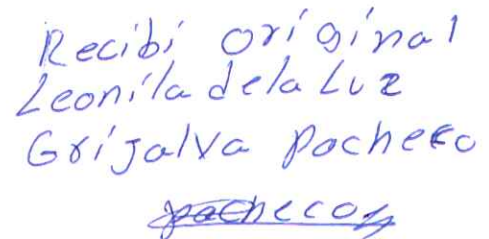 Recibi original
Leonila de la Luz
Grijalva Pacheco
pacheco